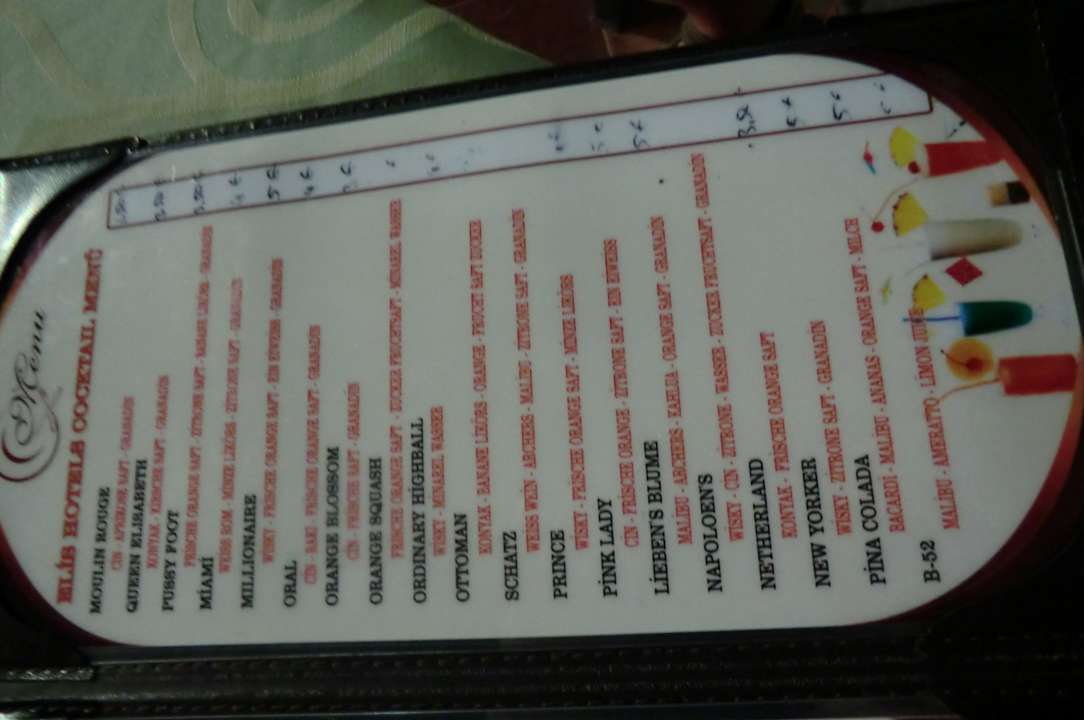 Menu
ELİS HOTELS COCKTAIL MENÜ
MOULIN ROUGE
CIN - APRIKOSE SAFT - GRANADİN
QUEEN ELISABETH
KONYAK - KIRSCHE SAFT - GRANADİN
PUSSY FOOT
FRISCHE ORANGE SAFT - ZITRONE SAFT - BANANE LIKÖRS - GRANADİN
MİAMİ
WEISS ROM - MINZE LIKÖRS - ZITRONE SAFT - GRANADİN
MILLIONAIRE
WİSKY - FRİSCHE ORANGE SAFT - EIN EIWEISS - GRANADİN
ORAL
CİN - RAKI - FRİSCHE ORANGE SAFT - GRANADİN
ORANGE BLOSSOM
CİN - FRISCHE SAFT - GRANADİN
ORANGE SQUASH
FRISCHE ORANGE SAFT - ZUCKER FRUCHTSAFT - MINAREL WASSER
ORDINARY HIGHBALL
WISKY - MINAREL WASSER
OTTOMAN
KONYAK - BANANE LİKÖRS - ORANGE - FRUCHT SAFT ZUCKER
SCHATZ
WEISS WEİN - ARCHERS - MALIBU - ZITRONE SAFT - GRANADİN
PRINCE
WİSKY - FRİSCHE ORANGE SAFT - MİNZE LİKÖRS
PİNK LADY
CİN - FRİSCHE ORANGE - ZITRONE SAFT - EİN EİWEİSS
LİEBEN'S BLUME
MALIBU - ARCHERS - KAHLUA - ORANGE SAFT - GRANADİN
NAPOLOEN'S
WİSKY - CIN - ZITRONE - WASSER - ZUCKER FRUCHTSAFT - GRANADİN
NETHERLAND
KONYAK - FRİSCHE ORANGE SAFT
NEW YORKER
WİSKY - ZITRONE SAFT - GRANADİN
5 €
PİNA COLADA
BACARDI - MALİBU - ANANAS - ORANGE SAFT - MILCH
B-52
MALIBU - AMERATTO - LIMON JUICE